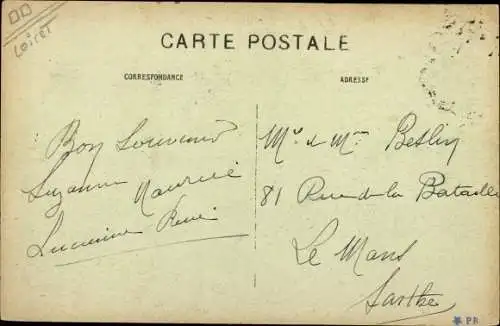 Loiret
CARTE POSTALE
CORRESPONDANCE
ADRESSE
Bon Souvenir
Suzanne Maurice
Lucienne René
Mr & Mme Beslin
81 Rue de la Bataille
Le Mans
Sarthe
PR